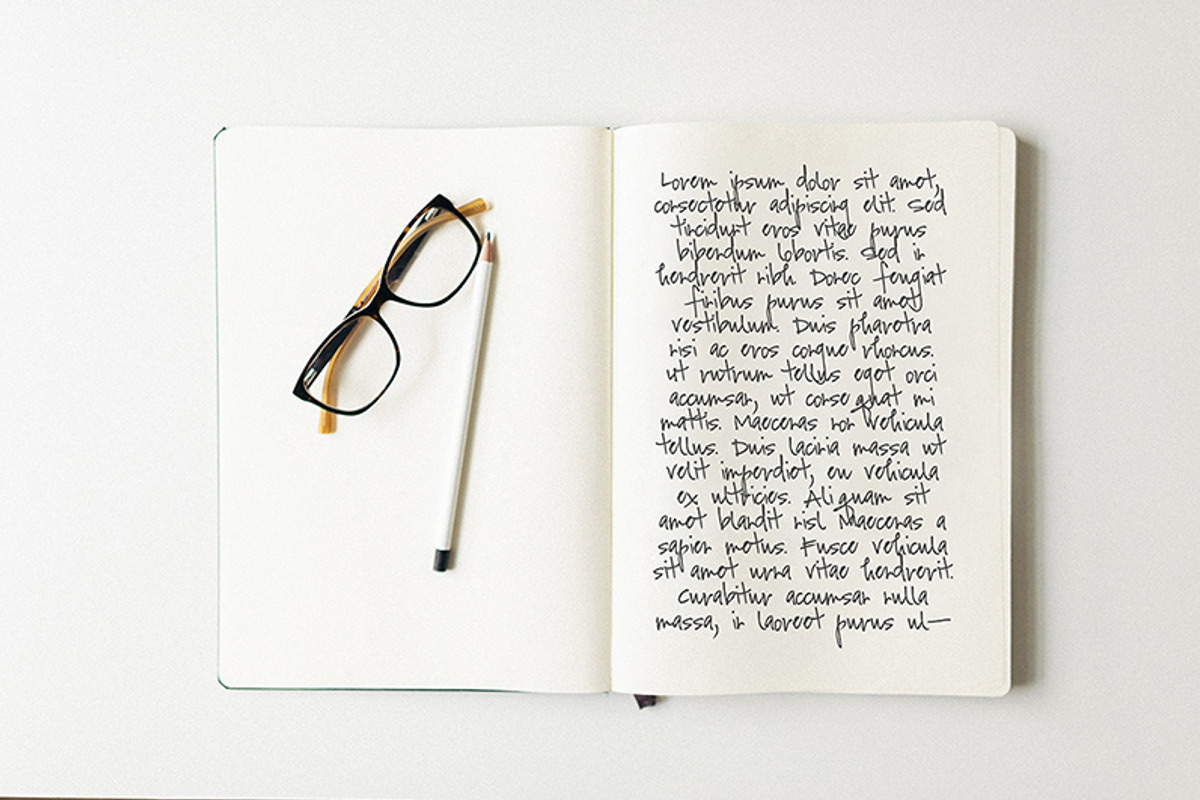 Lorem ipsum dolor sit amet,
consectetur adipiscing elit. Sed
tincidunt eros vitae purus
bibendum lobortis. Sed in
hendrerit nibh Donec feugiat
finibus purus sit amet
vestibulum. Duis pharetra
nisi ac eros congue rhoncus.
ut rutrum tellus eget orci
accumsan, ut consequat mi
mattis. Maecenas non vehicula
tellus. Duis lacinia massa ut
velit imperdiet, eu vehicula
ex ultricies. Aliquam sit
amet blandit nisl Maecenas a
sapien metus. Fusce vehicula
sit amet urna vitae hendrerit.
Curabitur accumsan nulla
massa, in laoreet purus ul—